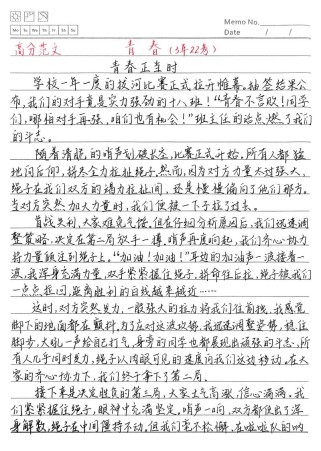 Memo No.
Mo Tu We Th Fr Sa Su
Date / /
高分范文 青春(3年22考)
青春正当时
学校一年一度的拔河比赛正式拉开帷幕。抽签结果公
布,我们的对手竟是实力强劲的十八班!“青春不言败!同学
们,哪怕对手再强,咱们也有机会!”班主任的话点燃了我们
的斗志。
随着清脆的哨声划破长空,比赛正式开始。所有人都猛
地向后仰,拼尽全力拉扯绳子。然而,因为对方力量太过强大,
绳子在我们双方的诸力拉扯间,还是慢慢偏向了他们那方。
当对方突然加大力量时,我们便被一下子拉了过去。
首战失利,大家难免气馁。但在仔细分析原因后,我们迅速调
整策略,决定在第二局放手一搏。哨声再度响起,我们齐心协力
将力量倾注到绳子上。“加油!加油!”耳边的加油声一浪接着一
浪,我浑身充满力量,双手紧紧握住绳子,拼命往后拉,绳子被我们
一点点拉回,距离胜利的白线越来越近……
这时,对方突然发力,一股强大的拉力将我们往前拽,我感觉
脚下的地面都在颤抖。为了应对这波攻势,我迅速调整姿势,稳住
脚步,大吼一声给自己打气。身旁的同学也都展现出顽强的斗志,所
有人几乎同时发力,绳子以肉眼可见的速度向我们这边移动。在大
家的齐心协力下,我们终于拿下了第二局。
接下来是决定胜负的第三局,大家士气高涨,信心满满。我
们紧紧握住绳子,眼神中充满坚定。哨声一响,双方都使出了浑
身解数,绳子在中间僵持不动。但我们毫不松懈,在啦啦队的呐